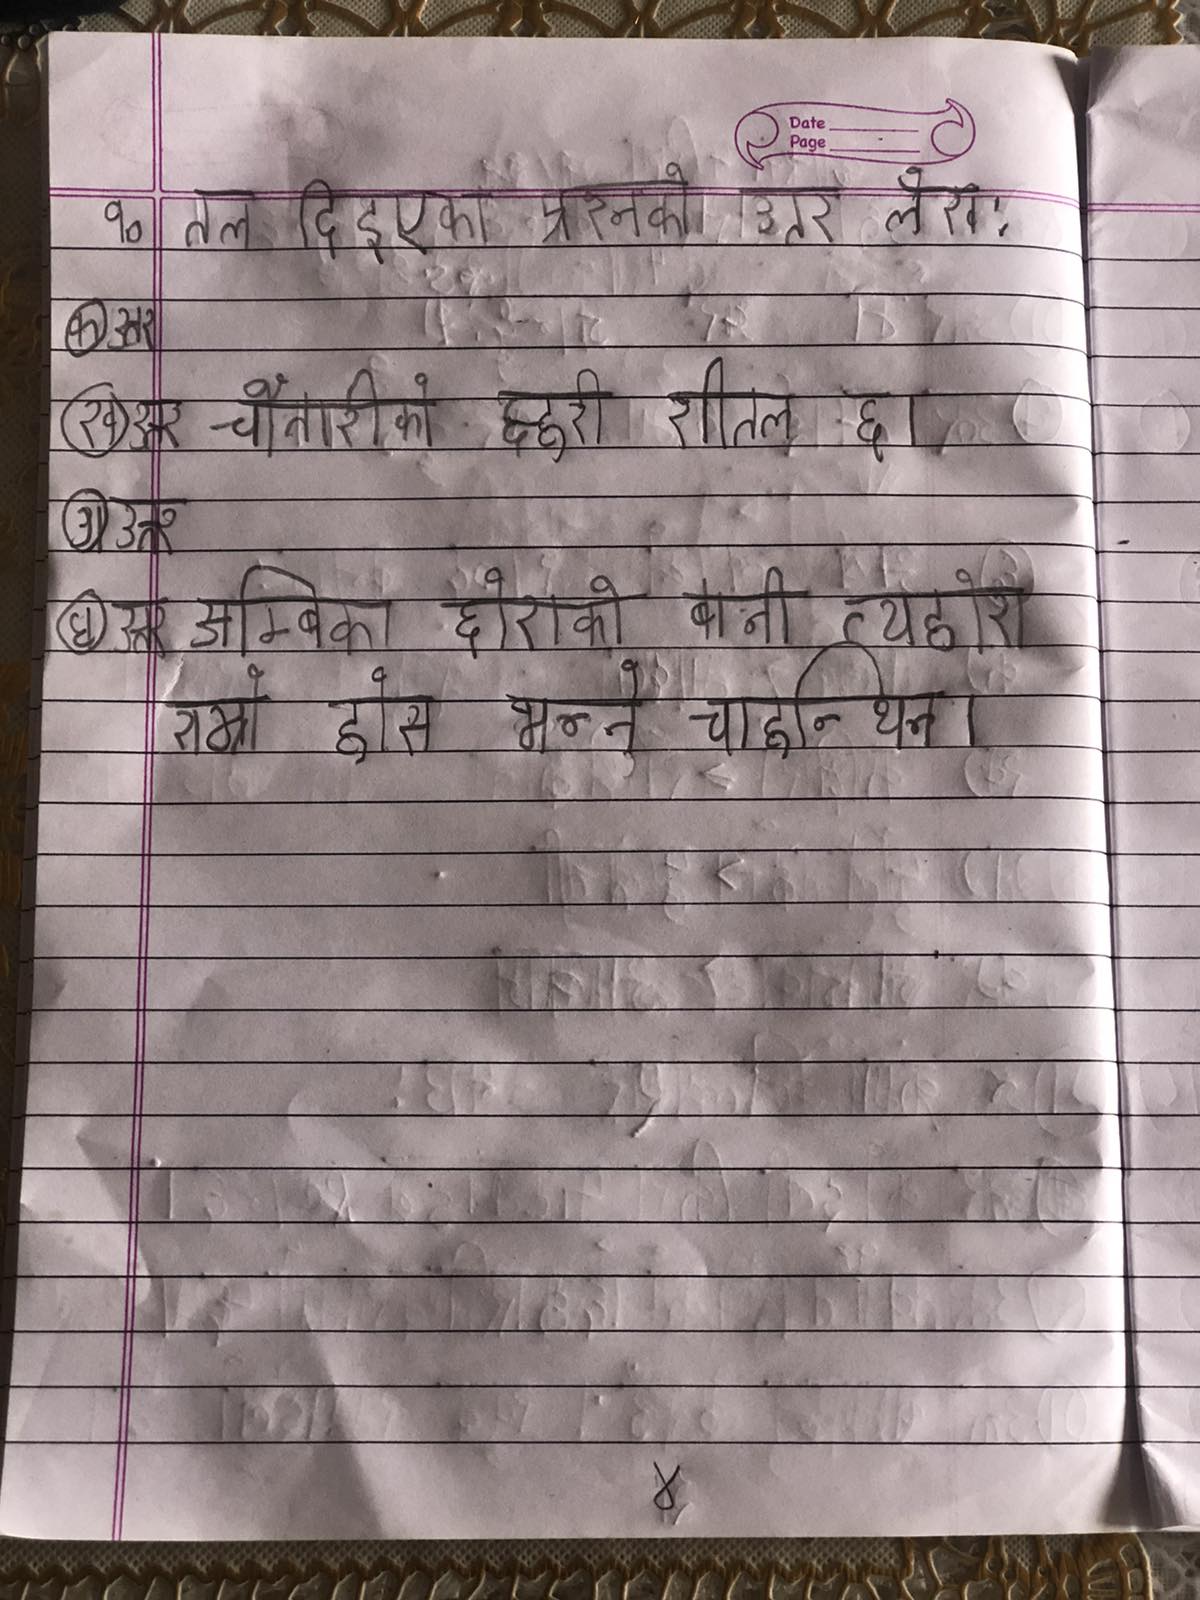 Date
Page
१० तल दिइएका प्रस्नको उतर लेख:
क उत्तर
ख उत्तर चौंतारीको छहरी शीतल छ।
ग उत्तर
घ उत्तर अम्बिका छोराको बानी त्यहोरा
राम्रो होस भन्ने चाहान्थिन।
४